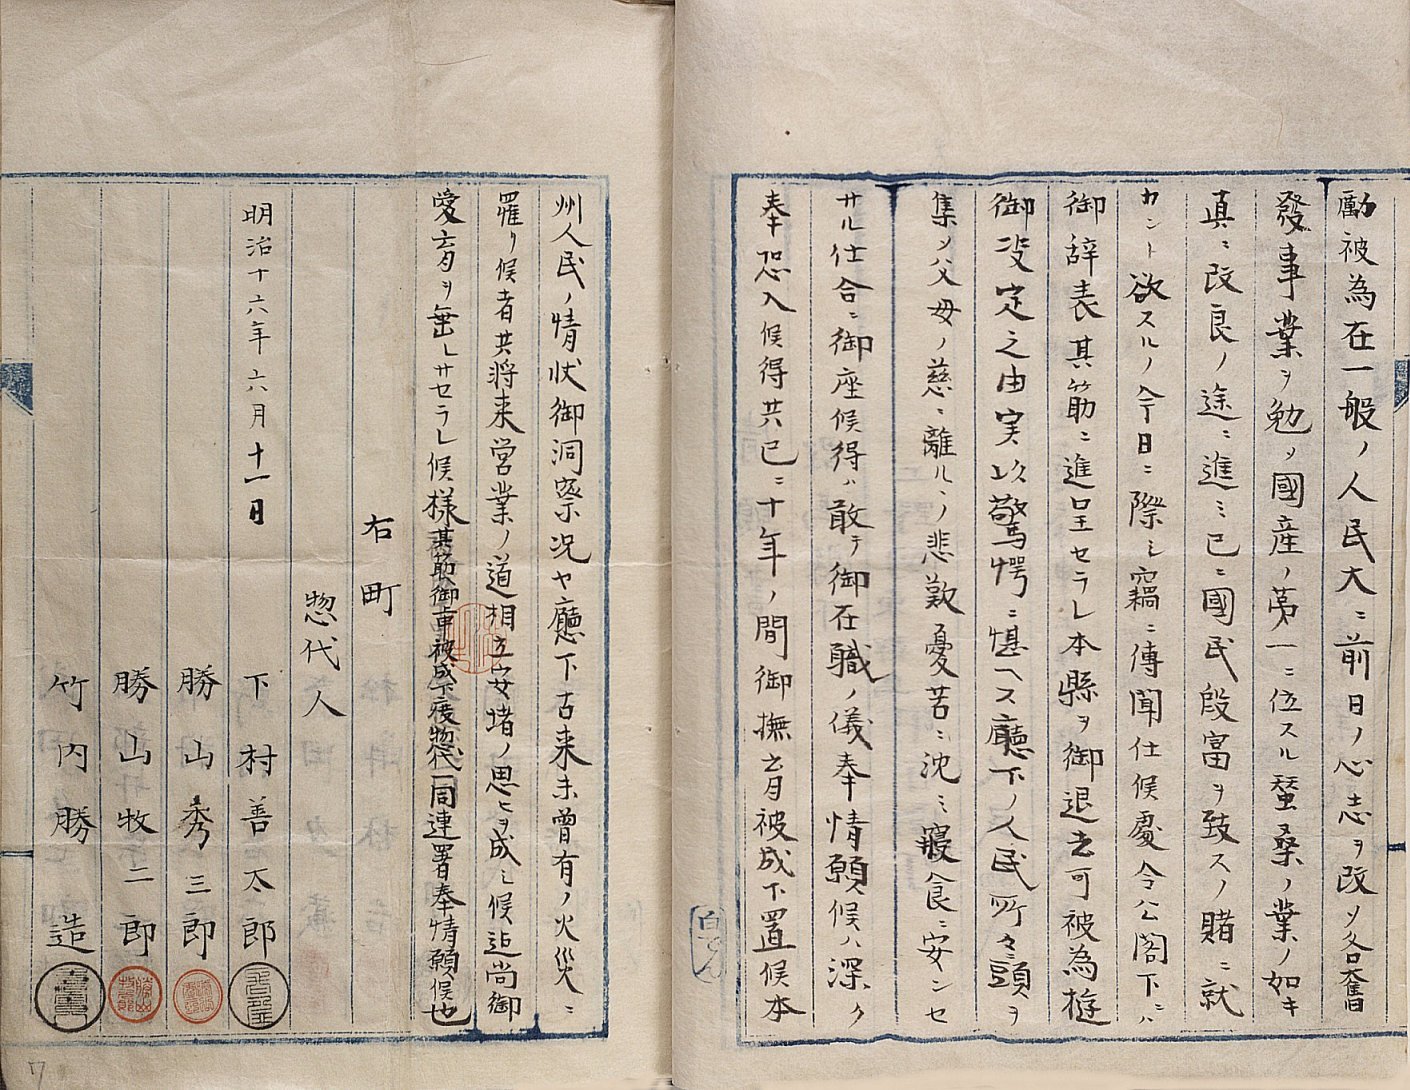 勵被為在一般ノ人民大ニ前日ノ心志ヲ改メ各奮
發事業ヲ勉メ國産ノ第一ニ位スル蚕桑ノ業ノ如キ
真ニ改良ノ途ニ進ミ已ニ國民殷富ヲ致スノ賭ニ就
カント欲スルノ今日ニ際シ竊ニ傳聞仕候處令公閣下ニハ
御辞表其筋ニ進呈セラレ本縣ヲ御退去可被為遊
御決定之由実以驚愕ニ堪ヘス廳下ノ人民所々頭ヲ
集メ父母ノ慈ニ離ルヽノ悲歎憂苦ニ沈ミ寝食ニ安ンセ
サル仕合ニ御座候得ハ敢テ御在職ノ儀奉情願候ハ深ク
奉恐入候得共已ニ十年ノ間御撫育被成下置候本
州人民ノ情状御洞察况ヤ廳下古来未曽有ノ火災ニ
罹リ候者共将来営業ノ道相立安堵ノ思ヒヲ成シ候迠尚御
愛育ヲ無レサセラレ候様其筋御申被成下度惣代一同連署奉情願候也
右町
惣代人
明治十六年六月十一日
下村善太郎
勝山秀三郎
勝山牧二郎
竹内勝造